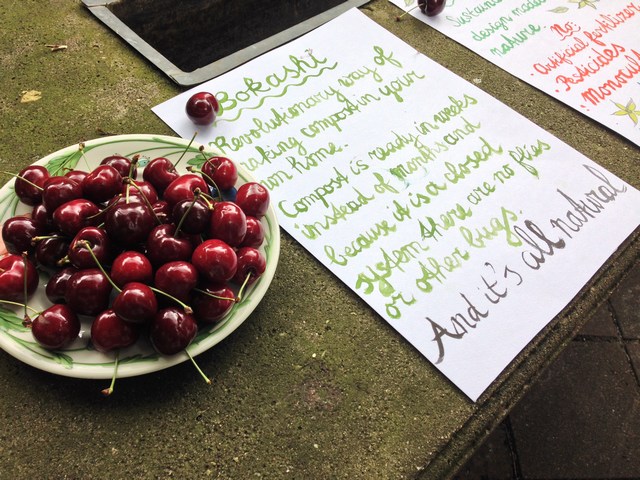 Bokashi
Revolutionary way of
making compost in your
own home.
Compost is ready in weeks
instead of months and
because it is a closed
system there are no flies
or other bugs.
And it's all natural
design made
nature.
No:
Artificial fertilizer
Pesticides